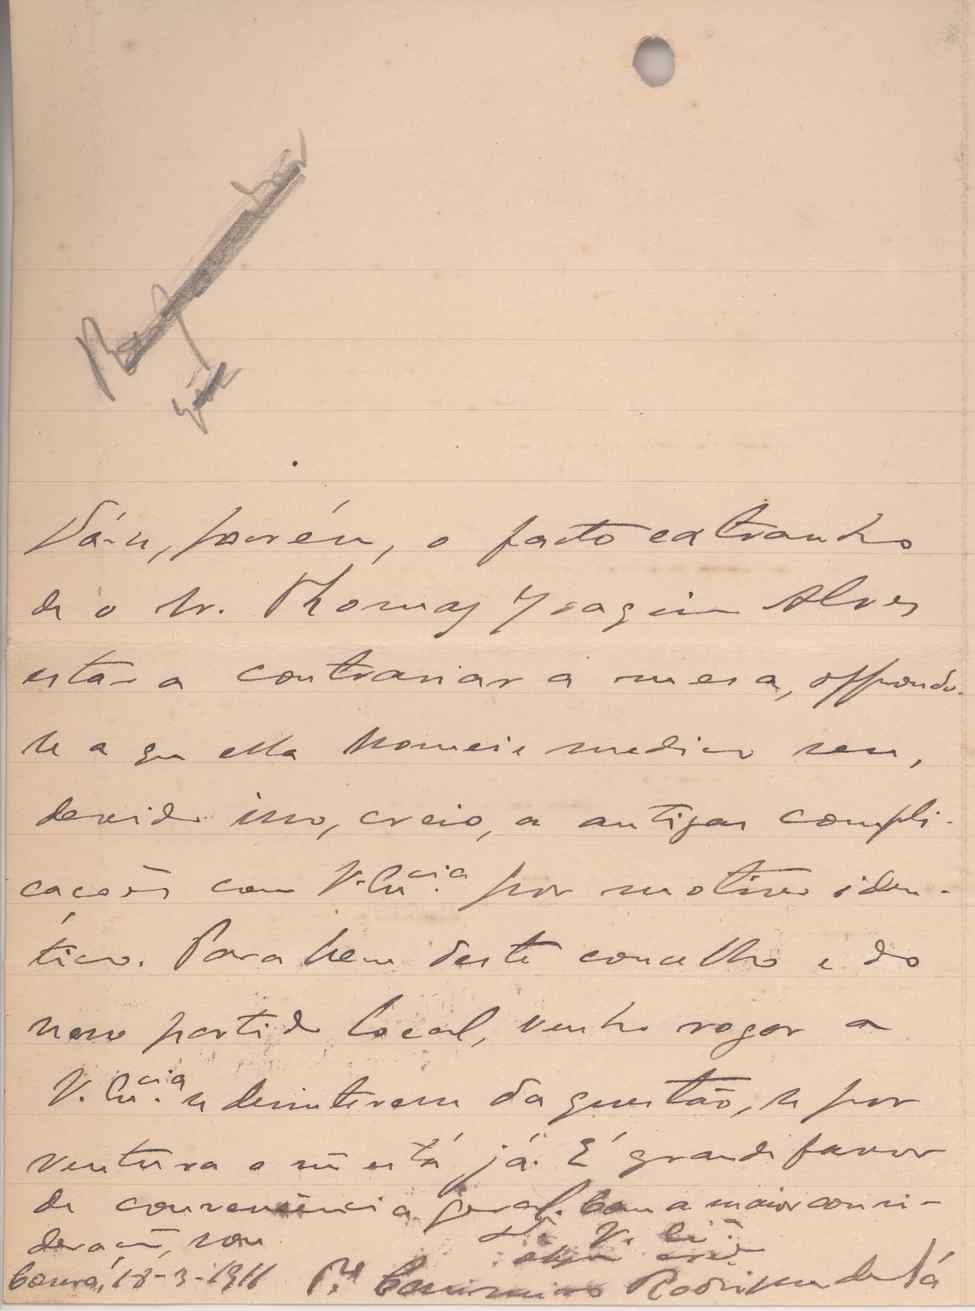 Dá-se, porém, o facto extranho
de o sr. Thomaz Joaquim Alves
estar a contrariar a mesa, oppondo-
se a que ella nomeie medico seu,
devido isso, creio, a antigas compli-
cacões com V. Ex.cia por motivo iden-
tico. Para bem deste concelho e do
nosso partido local, venho rogar a
V. Ex.cia se desinteresse da questão, se por
ventura o não está já. É grande favor
de conveniencia geral. Com a maior consi-
deração, sou
De V. Ex.ª
Coura, 18-3-1911 P.e Casimiro Rodrigues de Sá